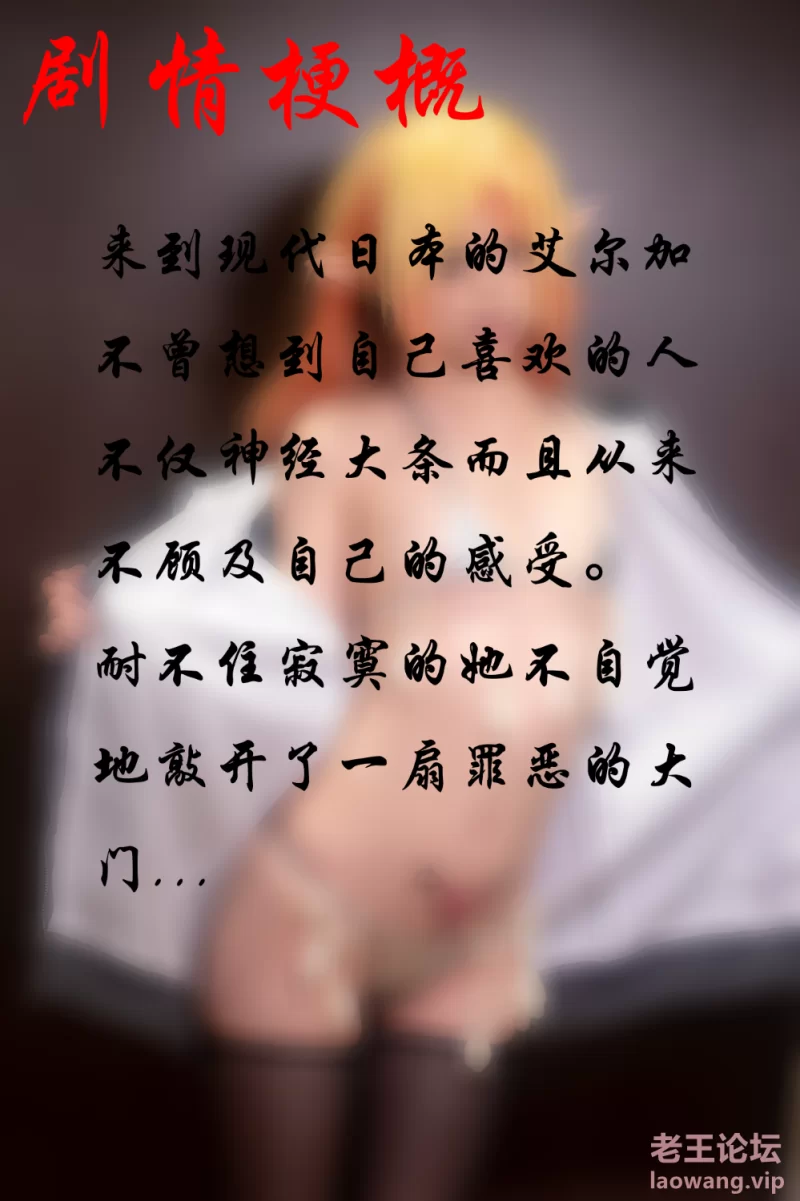 剧情梗概
来到现代日本的艾尔加
不曾想到自己喜欢的人
不仅神经大条而且从来
不顾及自己的感受。
耐不住寂寞的她不自觉
地敲开了一扇罪恶的大
门...
老王论坛
laowang.vip